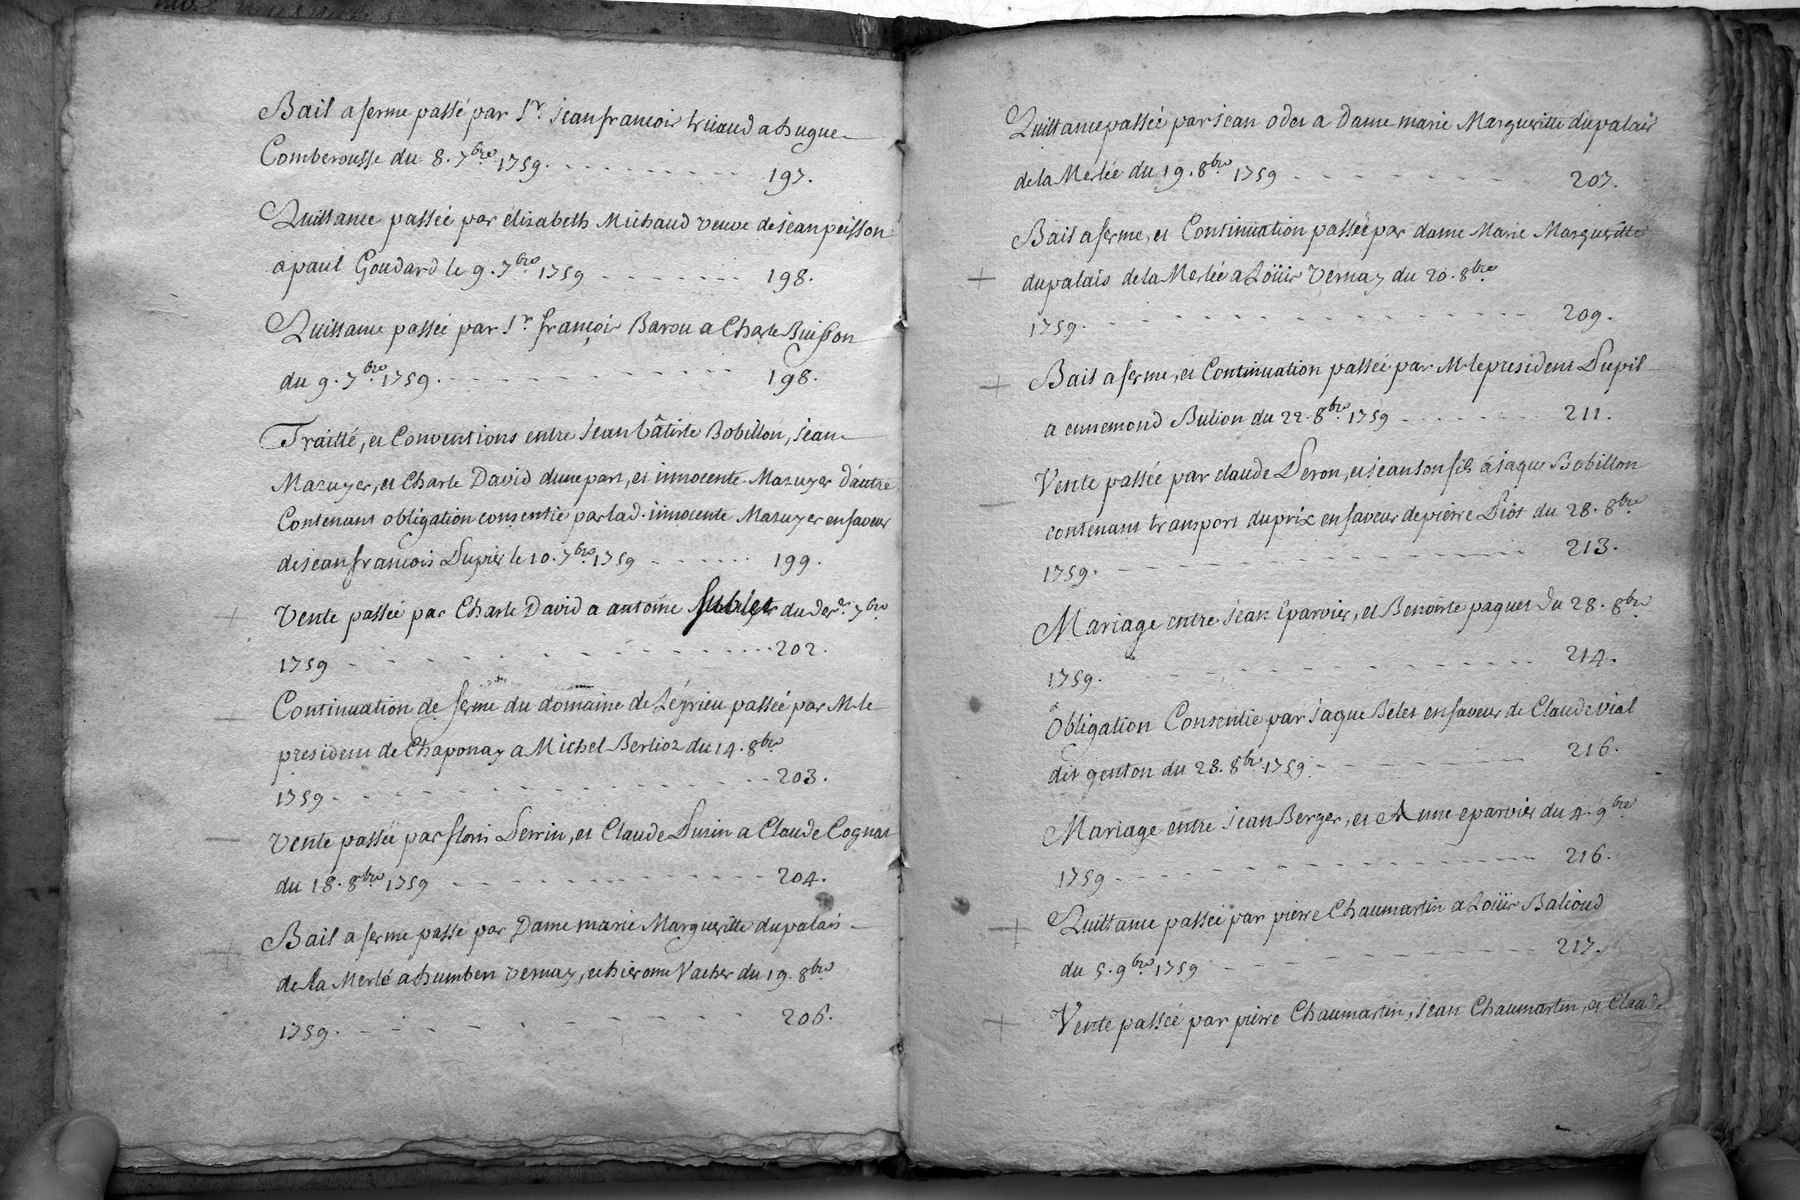 Bail a ferme passé par Sr. Jean francois a hugue
Comberousse du 8. 7bre 1759. 197.
Quittance passée par élizabeth Michaud veuve de jean peisson
a paul Goudard le 9. 7bre 1759 198.
Quittance passée par Sr. françois Barou a Charle Buisson
du 9. 7bre. 1759. 198.
Traitté, et Conventions entre Jean bâtiste Bobillon, jean
Mazuyer, et Charle David dune part, et innocente Mazuyer d'autre
Contenant obligation consentie par lad. innocente Mazuyer en faveur
de jean francois Dupier le 10. 7bre. 1759 199.
Vente passée par Charle David a antoine Sublet du der. 7bre
1759 202.
Continuation de ferme du domaine de Leyrieu passée par M. le
president de Chaponay a Michel Berlioz du 14. 8bre
1759. 203.
Vente passée par floris Perrin, et Claude Durin a Claude Cognat
du 18. 8bre 1759 204.
Bail a ferme passé par Dame marie Margueritte dupalais
de la Merlé a humbert vernay, et hierome Vacher du 19. 8bre
1759. 206.
Quittance passée par jean odet a Dame marie Margueritte dupalais
de la Merlée du 19. 8bre 1759 207.
Bail a ferme, et Continuation passée par dame Marie Margueritte
dupalais de la Merlée a Loüis Vernay du 20. 8bre
1759. 209.
Bail a ferme, et Continuation passée par M. le president Dupil
a ennemond Bulion du 22. 8bre. 1759 211.
Vente passée par claude Peron, et jean son fils a jaque Bobillon
contenant transport du prix en faveur de pierre Diôt du 28. 8bre
1759. 213.
Mariage entre Jean Eparvier, et Benoite paquet du 28. 8bre
1759. 214.
Obligation Consentie par Jaque Belet en faveur de Claude vial
dit genton du 28. 8bre. 1759. 216.
Mariage entre Jean Berger, et Anne eparvier du 4. 9bre
1759 216.
Quittance passée par pierre Chaumartin a Loüis Balioud
du 5. 9bre 1759 217.
Vente passée par pierre Chaumartin, Jean Chaumartin, et Claude